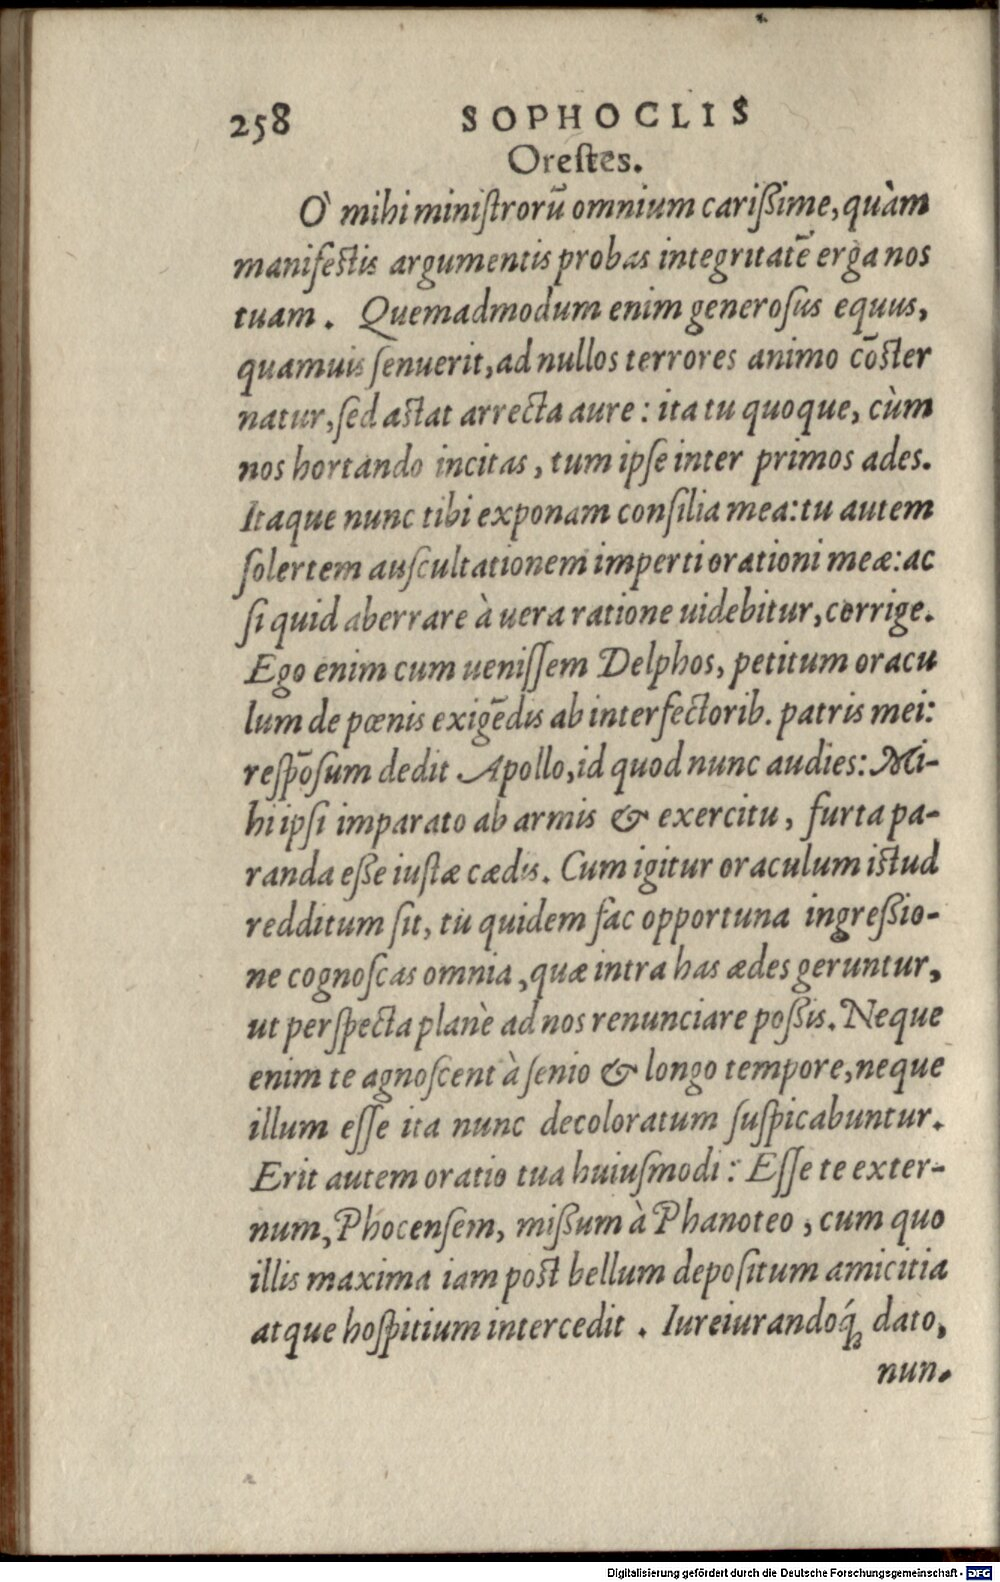 258 SOPHOCLIS
Orestes.
O' mihi ministrorũ omnium carißime, quàm
manifestis argumentis probas integritatẽ erga nos
tuam. Quemadmodum enim generosus equus,
quamuis senuerit, ad nullos terrores animo cõster
natur, sed astat arrecta aure: ita tu quoque, cùm
nos hortando incitas, tum ipse inter primos ades.
Itaque nunc tibi exponam consilia mea: tu autem
solertem auscultationem imperti orationi meæ: ac
si quid aberrare à uera ratione uidebitur, corrige.
Ego enim cum uenissem Delphos, petitum oracu
lum de pœnis exigẽdis ab interfectorib. patris mei:
respõsum dedit Apollo, id quod nunc audies: Mi-
hi ipsi imparato ab armis & exercitu, furta pa-
randa eße iustæ cædis. Cum igitur oraculum istud
redditum sit, tu quidem fac opportuna ingreßio-
ne cognoscas omnia, quæ intra has ædes geruntur,
ut perspecta planè ad nos renunciare poßis. Neque
enim te agnoscent à senio & longo tempore, neque
illum esse ita nunc decoloratum suspicabuntur.
Erit autem oratio tua huiusmodi: Esse te exter-
num, Phocensem, mißum à Phanoteo, cum quo
illis maxima iam post bellum depositum amicitia
atque hospitium intercedit. Iureiurandoq́; dato,
nun.
Digitalisierung gefördert durch die Deutsche Forschungsgemeinschaft - DFG